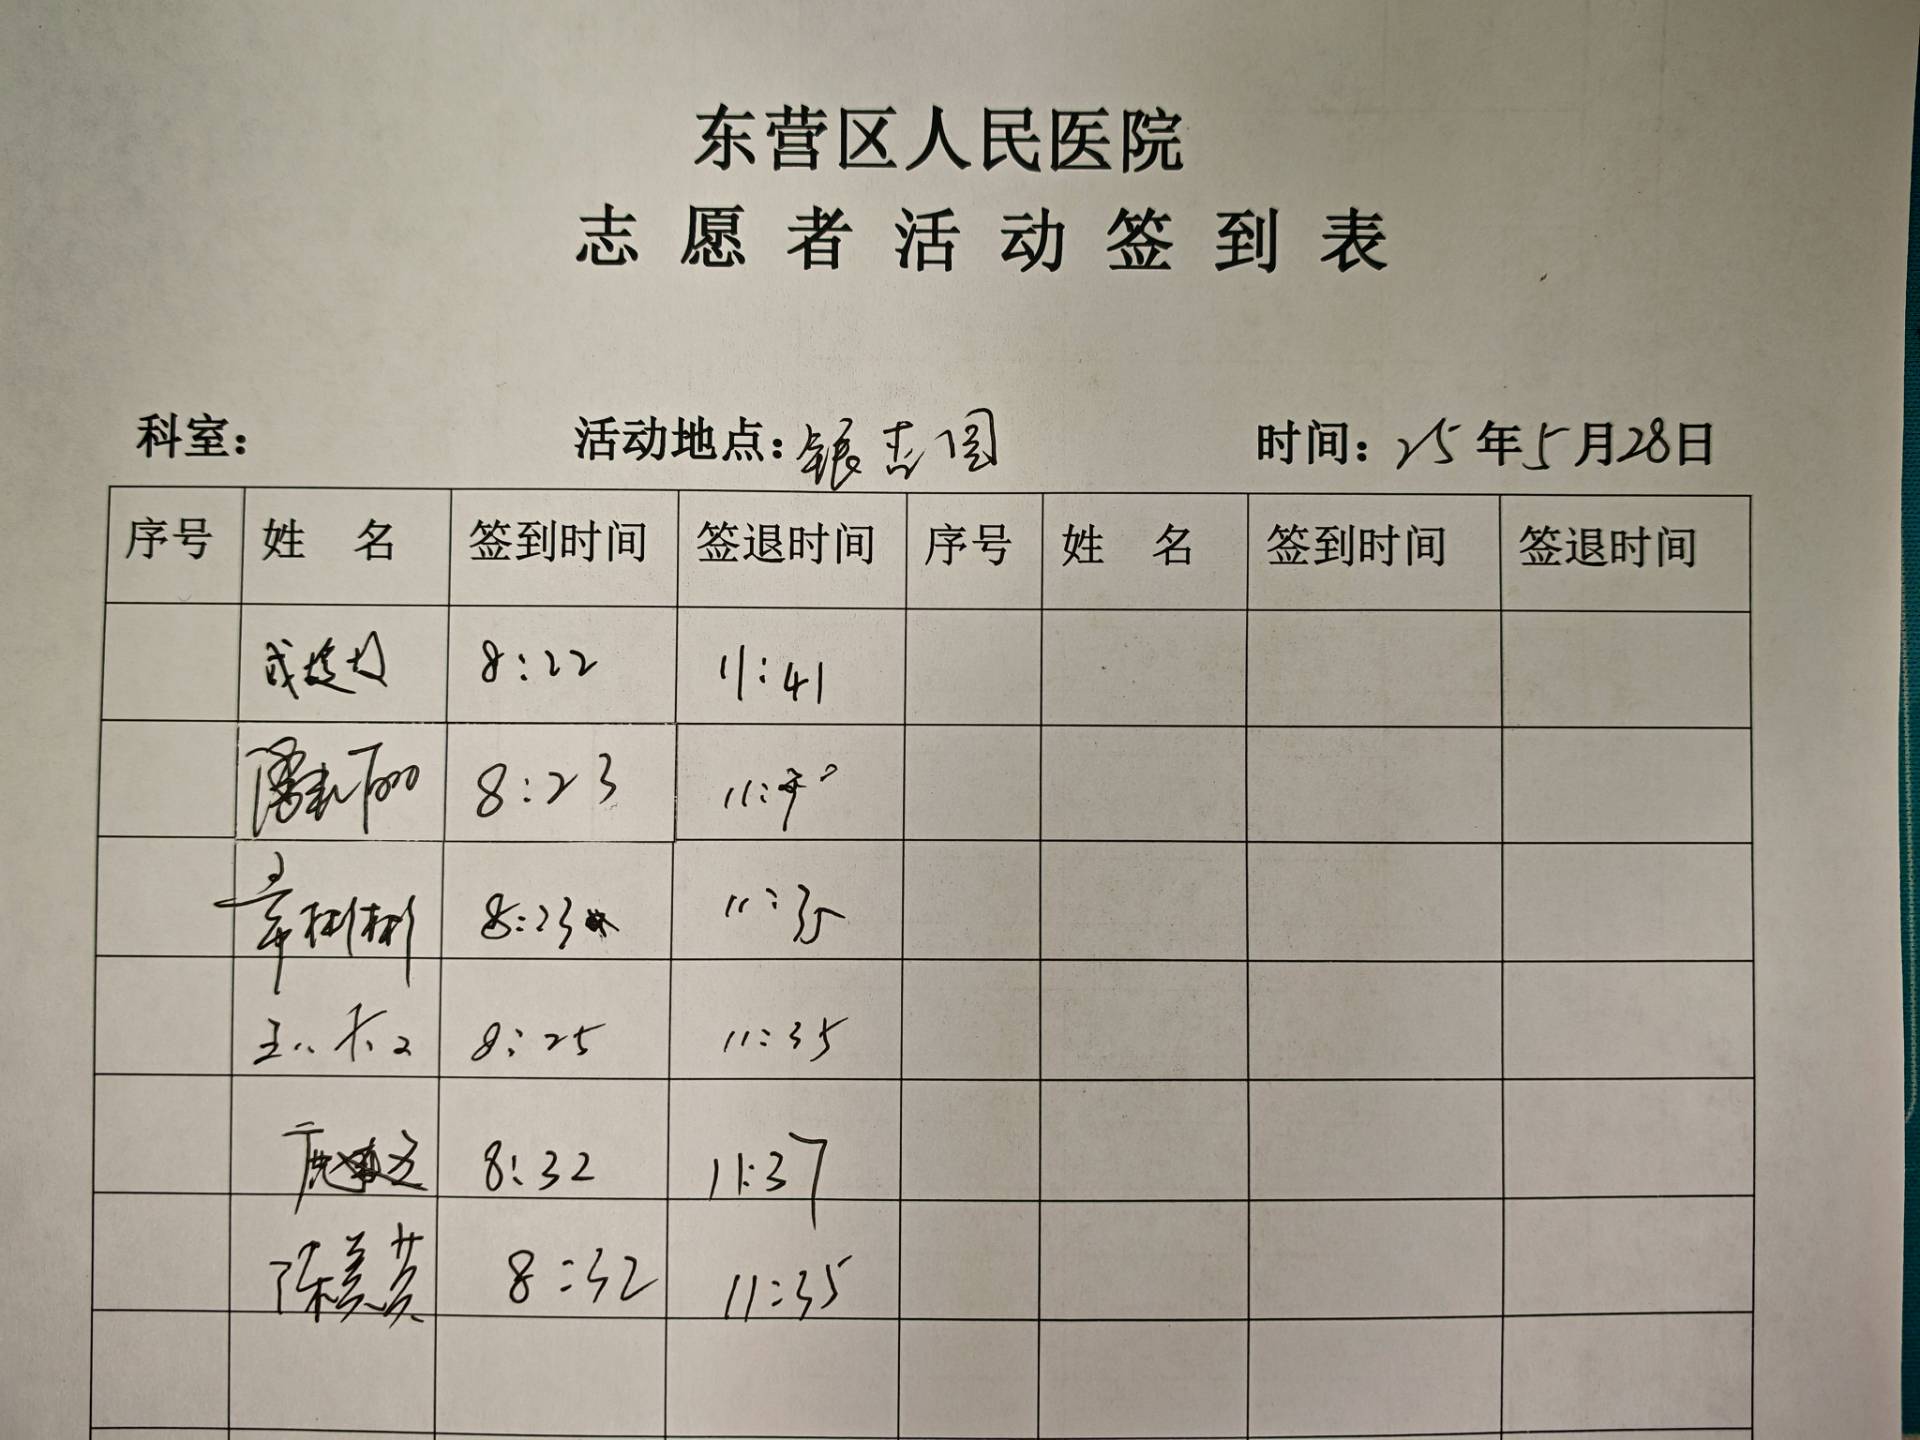 东营区人民医院
志愿者活动签到表
科室： 活动地点： 时间：25年5月28日
序号 姓 名 签到时间 签退时间 序号 姓 名 签到时间 签退时间
8:22 11:41
8:23
章彬彬 8:23 11:35
8:25 11:35
8:32 11:37
陈美英 8:32 11:35